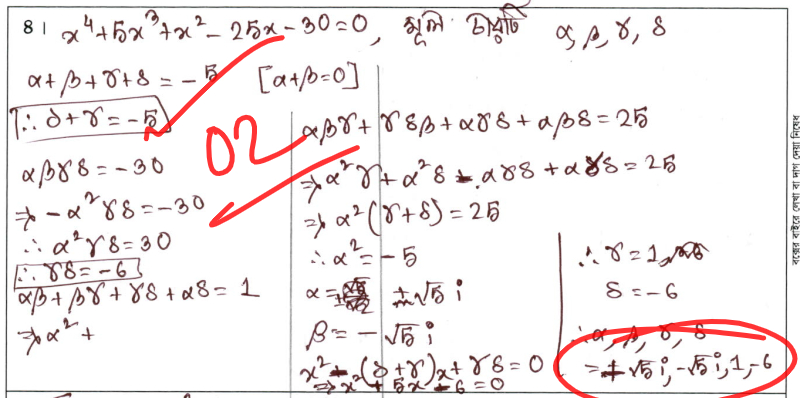 8। x⁴+5x³+x²-25x-30=0, মূল চারটি α, β, γ, δ
α+β+γ+δ = -5 [α+β=0]
∴ δ+γ = -5
αβγδ = -30
⇒ -α²γδ = -30
∴ α²γδ = 30
∴ γδ = -6
αβ + βγ + γδ + αδ = 1
⇒ α² +
02
αβγ + γδβ + αγδ + αβδ = 25
⇒ α²γ + α²δ - αγδ + αγδ = 25
⇒ α²(γ+δ) = 25
∴ α² = -5
α = ±√5 i
β = -√5 i
x² - (δ+γ)x + γδ = 0
⇒ x² + 5x - 6 = 0
∴ γ = 1,
δ = -6
∴ α, β, γ, δ
= +√5 i, -√5 i, 1, -6
বক্সের বাইরে লেখা বা দাগ দেয়া নিষেধ